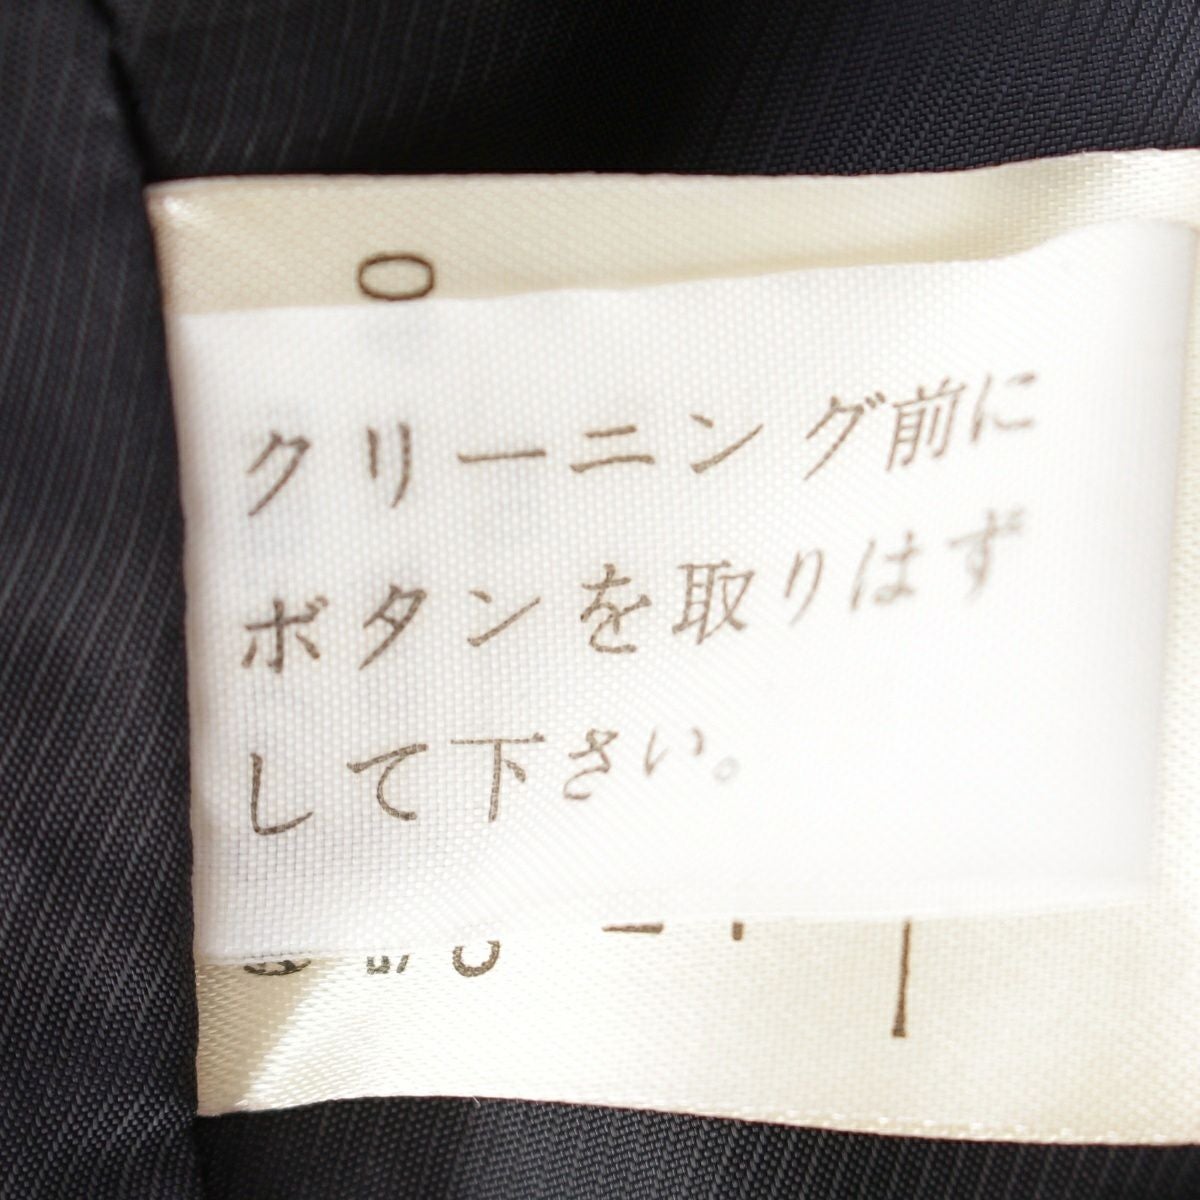 クリーニング前に
ボタンを取りはず
して下さい。